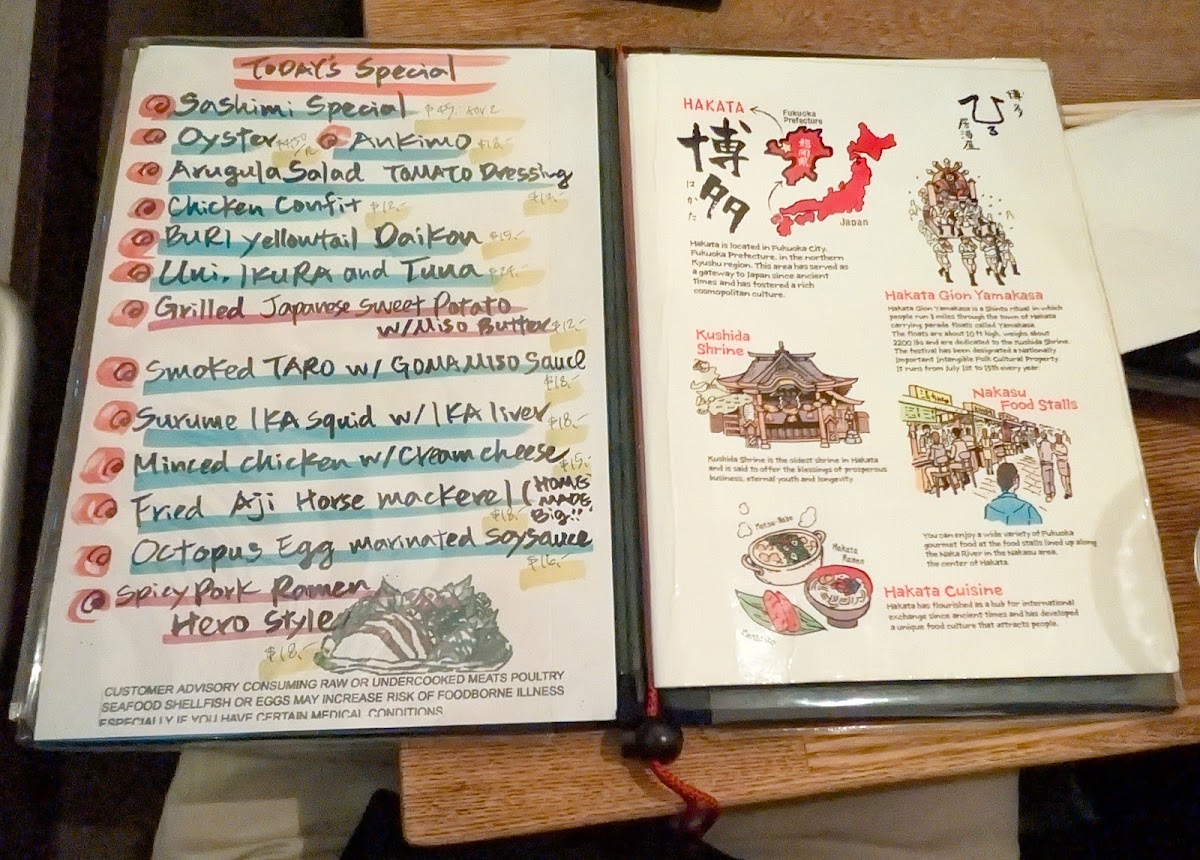 TODAY'S Special
Sashimi Special $49. for 2
Oyster Ankimo $18.-
Arugula Salad TOMATO Dressing
Chicken Confit $12.-
BURI yellowtail Daikon $15.-
Uni. IKURA and Tuna $24.-
Grilled Japanese Sweet Potato
w/Miso Butter $12.-
Smoked TARO w/ GOMAMISO Sauce
$18.-
Surume IKA squid w/ IKA liver $18.-
Minced chicken w/Cream cheese $15.-
Fried Aji Horse mackerel (HOME MADE Big!!
$18.-
Octopus Egg marinated soysauce
$16.-
Spicy Pork Ramen
Hero Style
$18.-
CUSTOMER ADVISORY CONSUMING RAW OR UNDERCOOKED MEATS POULTRY
SEAFOOD SHELLFISH OR EGGS MAY INCREASE RISK OF FOODBORNE ILLNESS
ESPECIALLY IF YOU HAVE CERTAIN MEDICAL CONDITIONS
HAKATA
Fukuoka
Prefecture
福岡県
博多
はかた
Japan
Hakata is located in Fukuoka City,
Fukuoka Prefecture, in the northern
Kyushu region. This area has served as
a gateway to Japan since ancient
times and has fostered a rich
cosmopolitan culture.
博多
ひる
居酒屋
Hakata Gion Yamakasa
Hakata Gion Yamakasa is a Shinto ritual in which
people run 3 miles through the town of Hakata
carrying parade floats called Yamakasa.
The floats are about 10 ft high, weighs about
2200 lbs and are dedicated to the Kushida Shrine.
The festival has been designated a Nationally
Important Intangible Folk Cultural Property.
It runs from July 1st to 15th every year.
Kushida
Shrine
Kushida Shrine is the oldest shrine in Hakata
and is said to offer the blessings of prosperous
business, eternal youth and longevity.
Nakasu
Food Stalls
You can enjoy a wide variety of Fukuoka
gourmet food at the food stalls lined up along
the Naka River in the Nakasu area,
the center of Hakata.
Motsu-Nabe
Hakata
Ramen
Mentaiko
Hakata Cuisine
Hakata has flourished as a hub for international
exchange since ancient times and has developed
a unique food culture that attracts people.